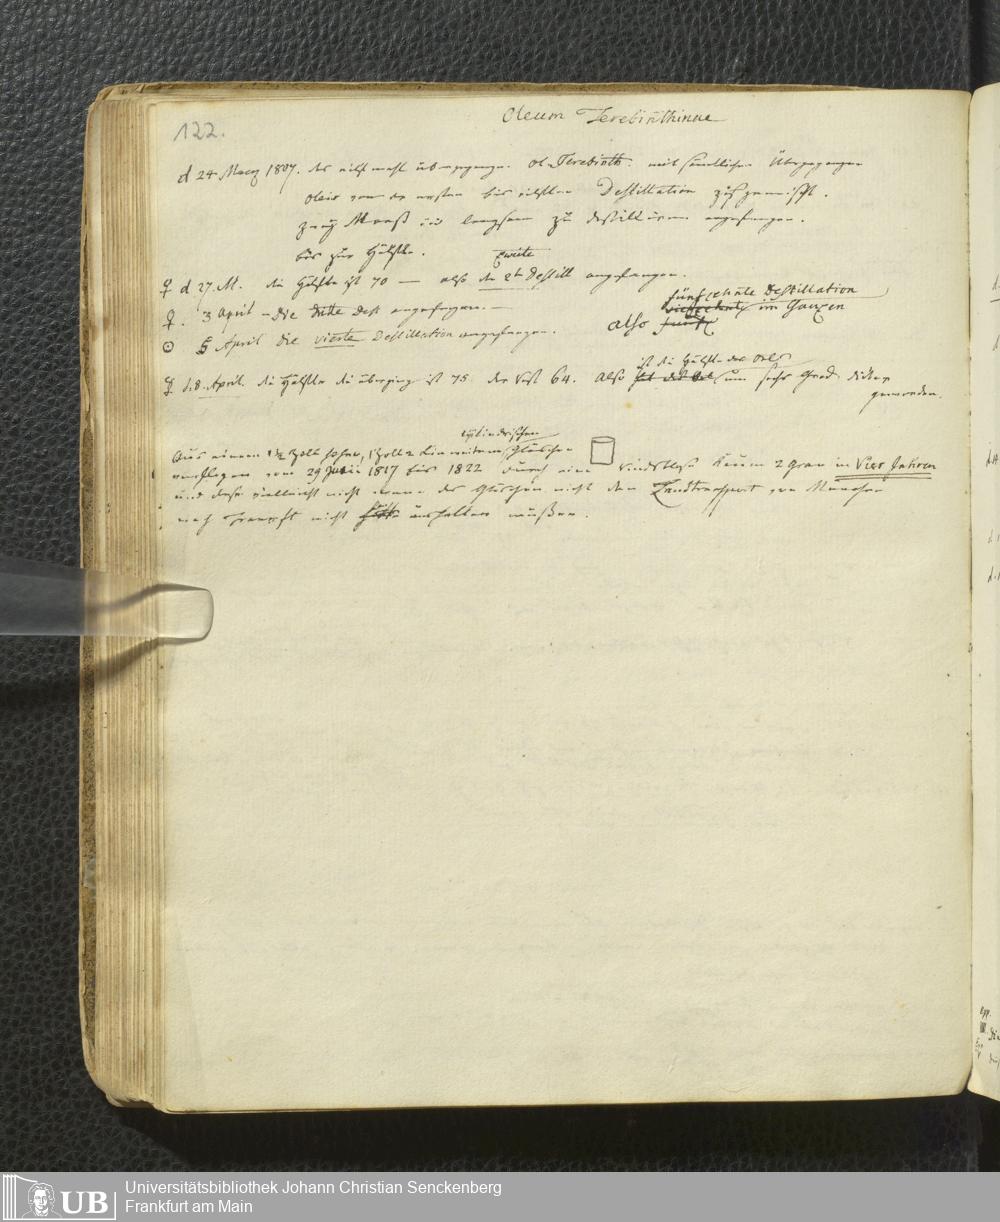 122.
Oleum Terebinthinae
d 24 Merz 1807. das acht mahl übergegangene ol. Terebinth. mit sämtlichen Übergegangenen
oleis von der ersten bis achten Destillation
Maaß und langsam zu destilliren angefangen.
bis zur Hälfte.
zweite
☿ d 27. M. die Hälfte ist 70 — also die 2te Destill angefangen.
fünfzehnte Destillation
♀. 3 April – die dritte Dest angefangen. — vierzehnte im Ganzen
also
☉ 5 April die vierte Destillation angefangen.
ist die Hälfte des Oels
☿ d. 8. April. die Hälfte die überging ist 75 der Rest 64. Also um sechs Grad dicker
geworden.
cylindrischen
Aus einem 1½ Zoll hohen, 1 Zoll 2 Lin weitem Gläschen
verflogen vom 29 Juni 1817 bis 1822 durch eine kaum 2 Gran in Vier Jahren
und diese vielleicht nicht wenn das Gläschen nicht den Landtransport von München
nach Frankft nicht hätte aushalten müßen.
UB
Universitätsbibliothek Johann Christian Senckenberg
Frankfurt am Main